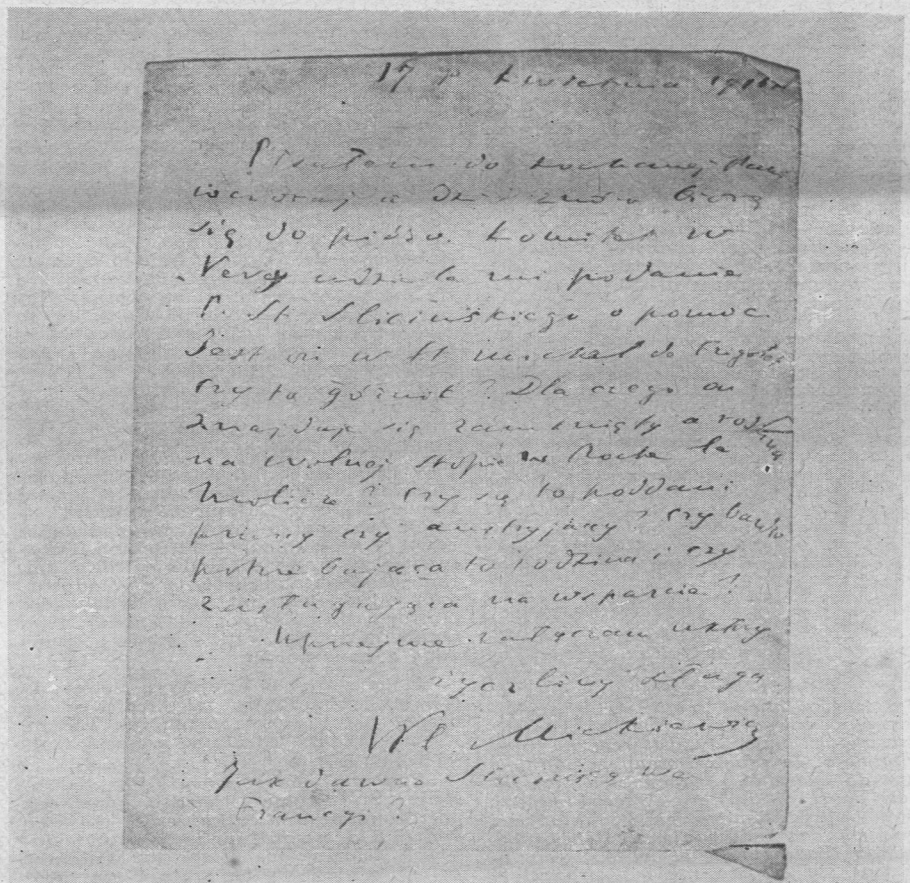 17 kwietnia
Pisałem do kochanej Pani
wczoraj a dziś znów biorę
się do pióra. Komitet w
Vevey udziela mi podanie
P. St Śliwińskiego o pomoc.
Jest on w St Michel de
czy to górnik? Dla czego on
znajduje się zamknięty a rodzina
na wolnej stopie w Roche la
Molière? czy są to poddani
pruscy czy austryjaccy? czy bardzo
potrzebująca to rodzina i czy
zasługująca na wsparcie?
Uprzejme załączam ukłony
życzliwy sługa
Wł. Mickiewicz
Jak dawno we
Francyi?